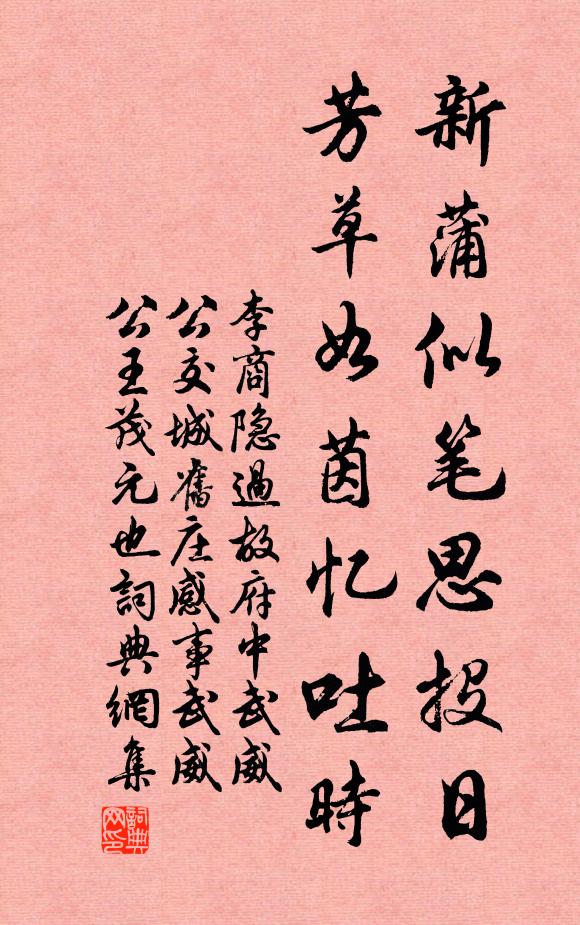 新蒲似笔思投日
芳草如茵忆吐時
李商隐過故府中武威
公交城舊庄感事武威
公王茂元也詞典網集
詞典网印